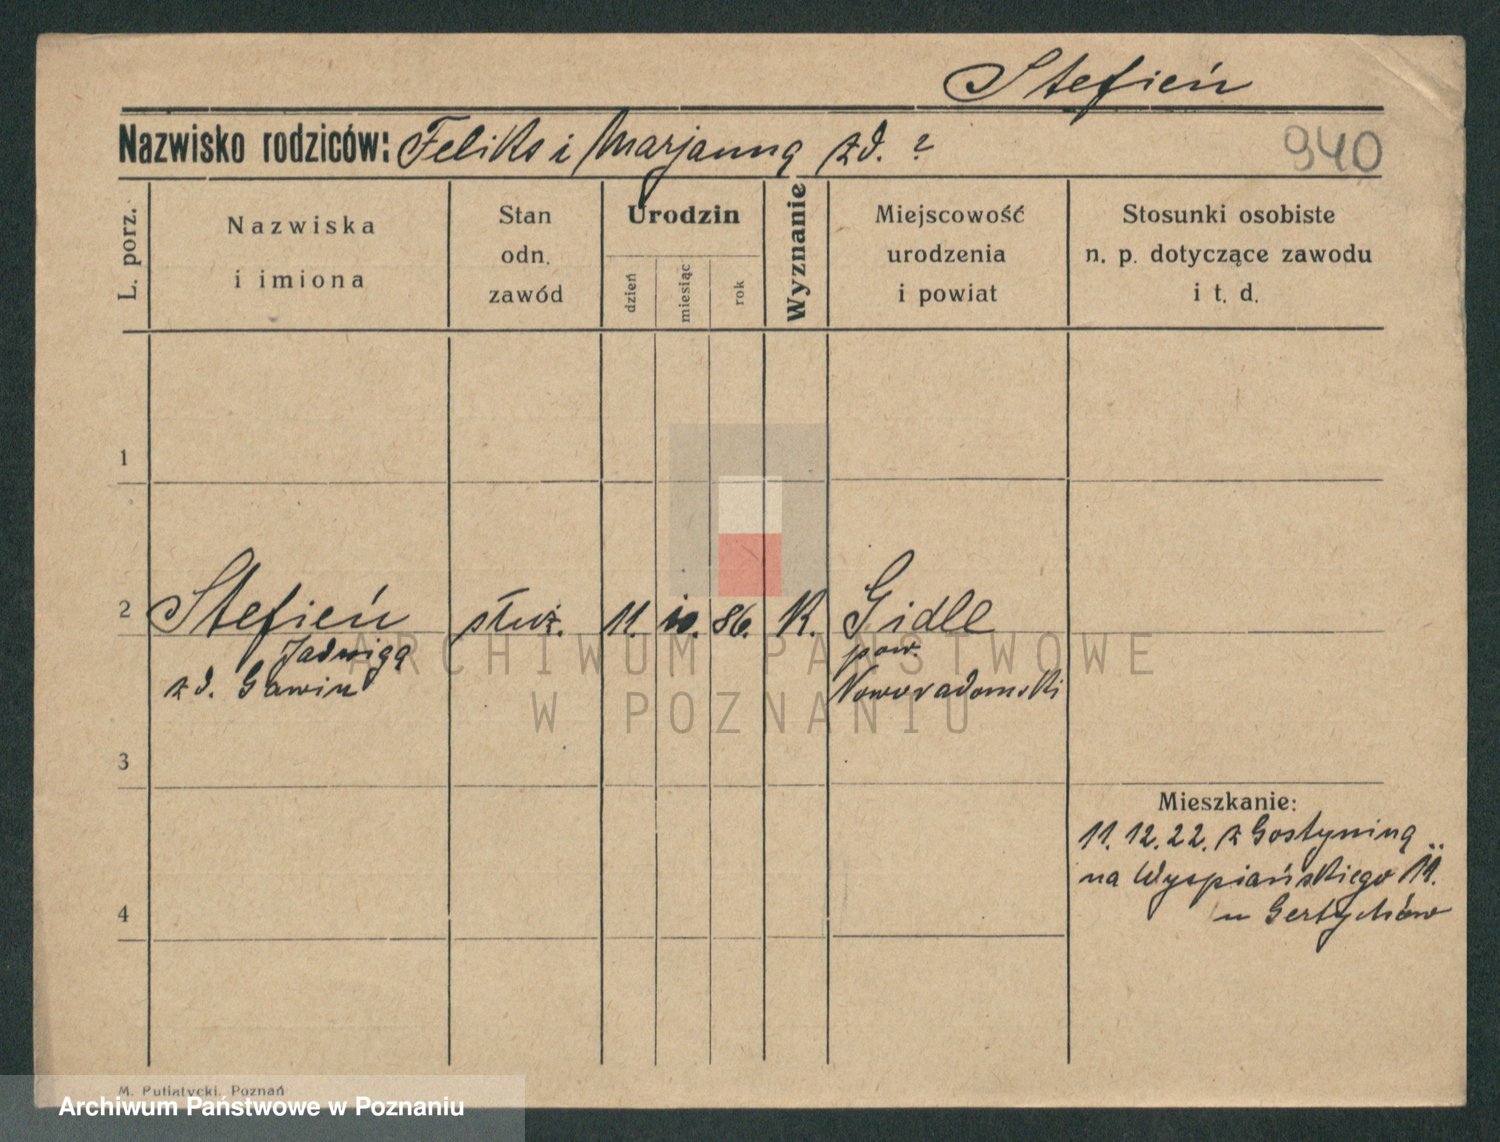 Stefień
Nazwisko rodziców: Feliks i Marjanna zd. ?
940
L. porz.
Nazwiska
i imiona
Stan
odn.
zawód
Urodzin
dzień
miesiąc
rok
Wyznanie
Miejscowość
urodzenia
i powiat
Stosunki osobiste
n. p. dotyczące zawodu
i t. d.
1
2 Stefień służ. 11. 10. 86. K. Gidle
Jadwiga pow.
zd. Gawin Noworadomski
3
Mieszkanie:
11. 12. 22. z Gostynina
na Wyspiańskiego 11.
u Gertychów
4
ARCHIWUM PAŃSTWOWE
W POZNANIU
M. Putiatycki, Poznań
Archiwum Państwowe w Poznaniu